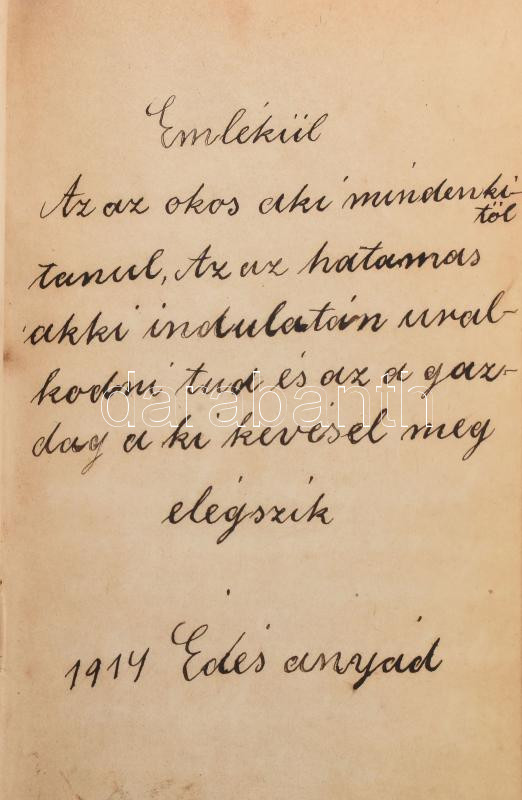 Emlékül
Az az okos aki mindenki-
től
tanul, Az az hatamas
akki indulatán ural-
kodni tud és az a gaz-
darabanth
dag a ki kevésel meg
elégszik
1914 Édes anyád